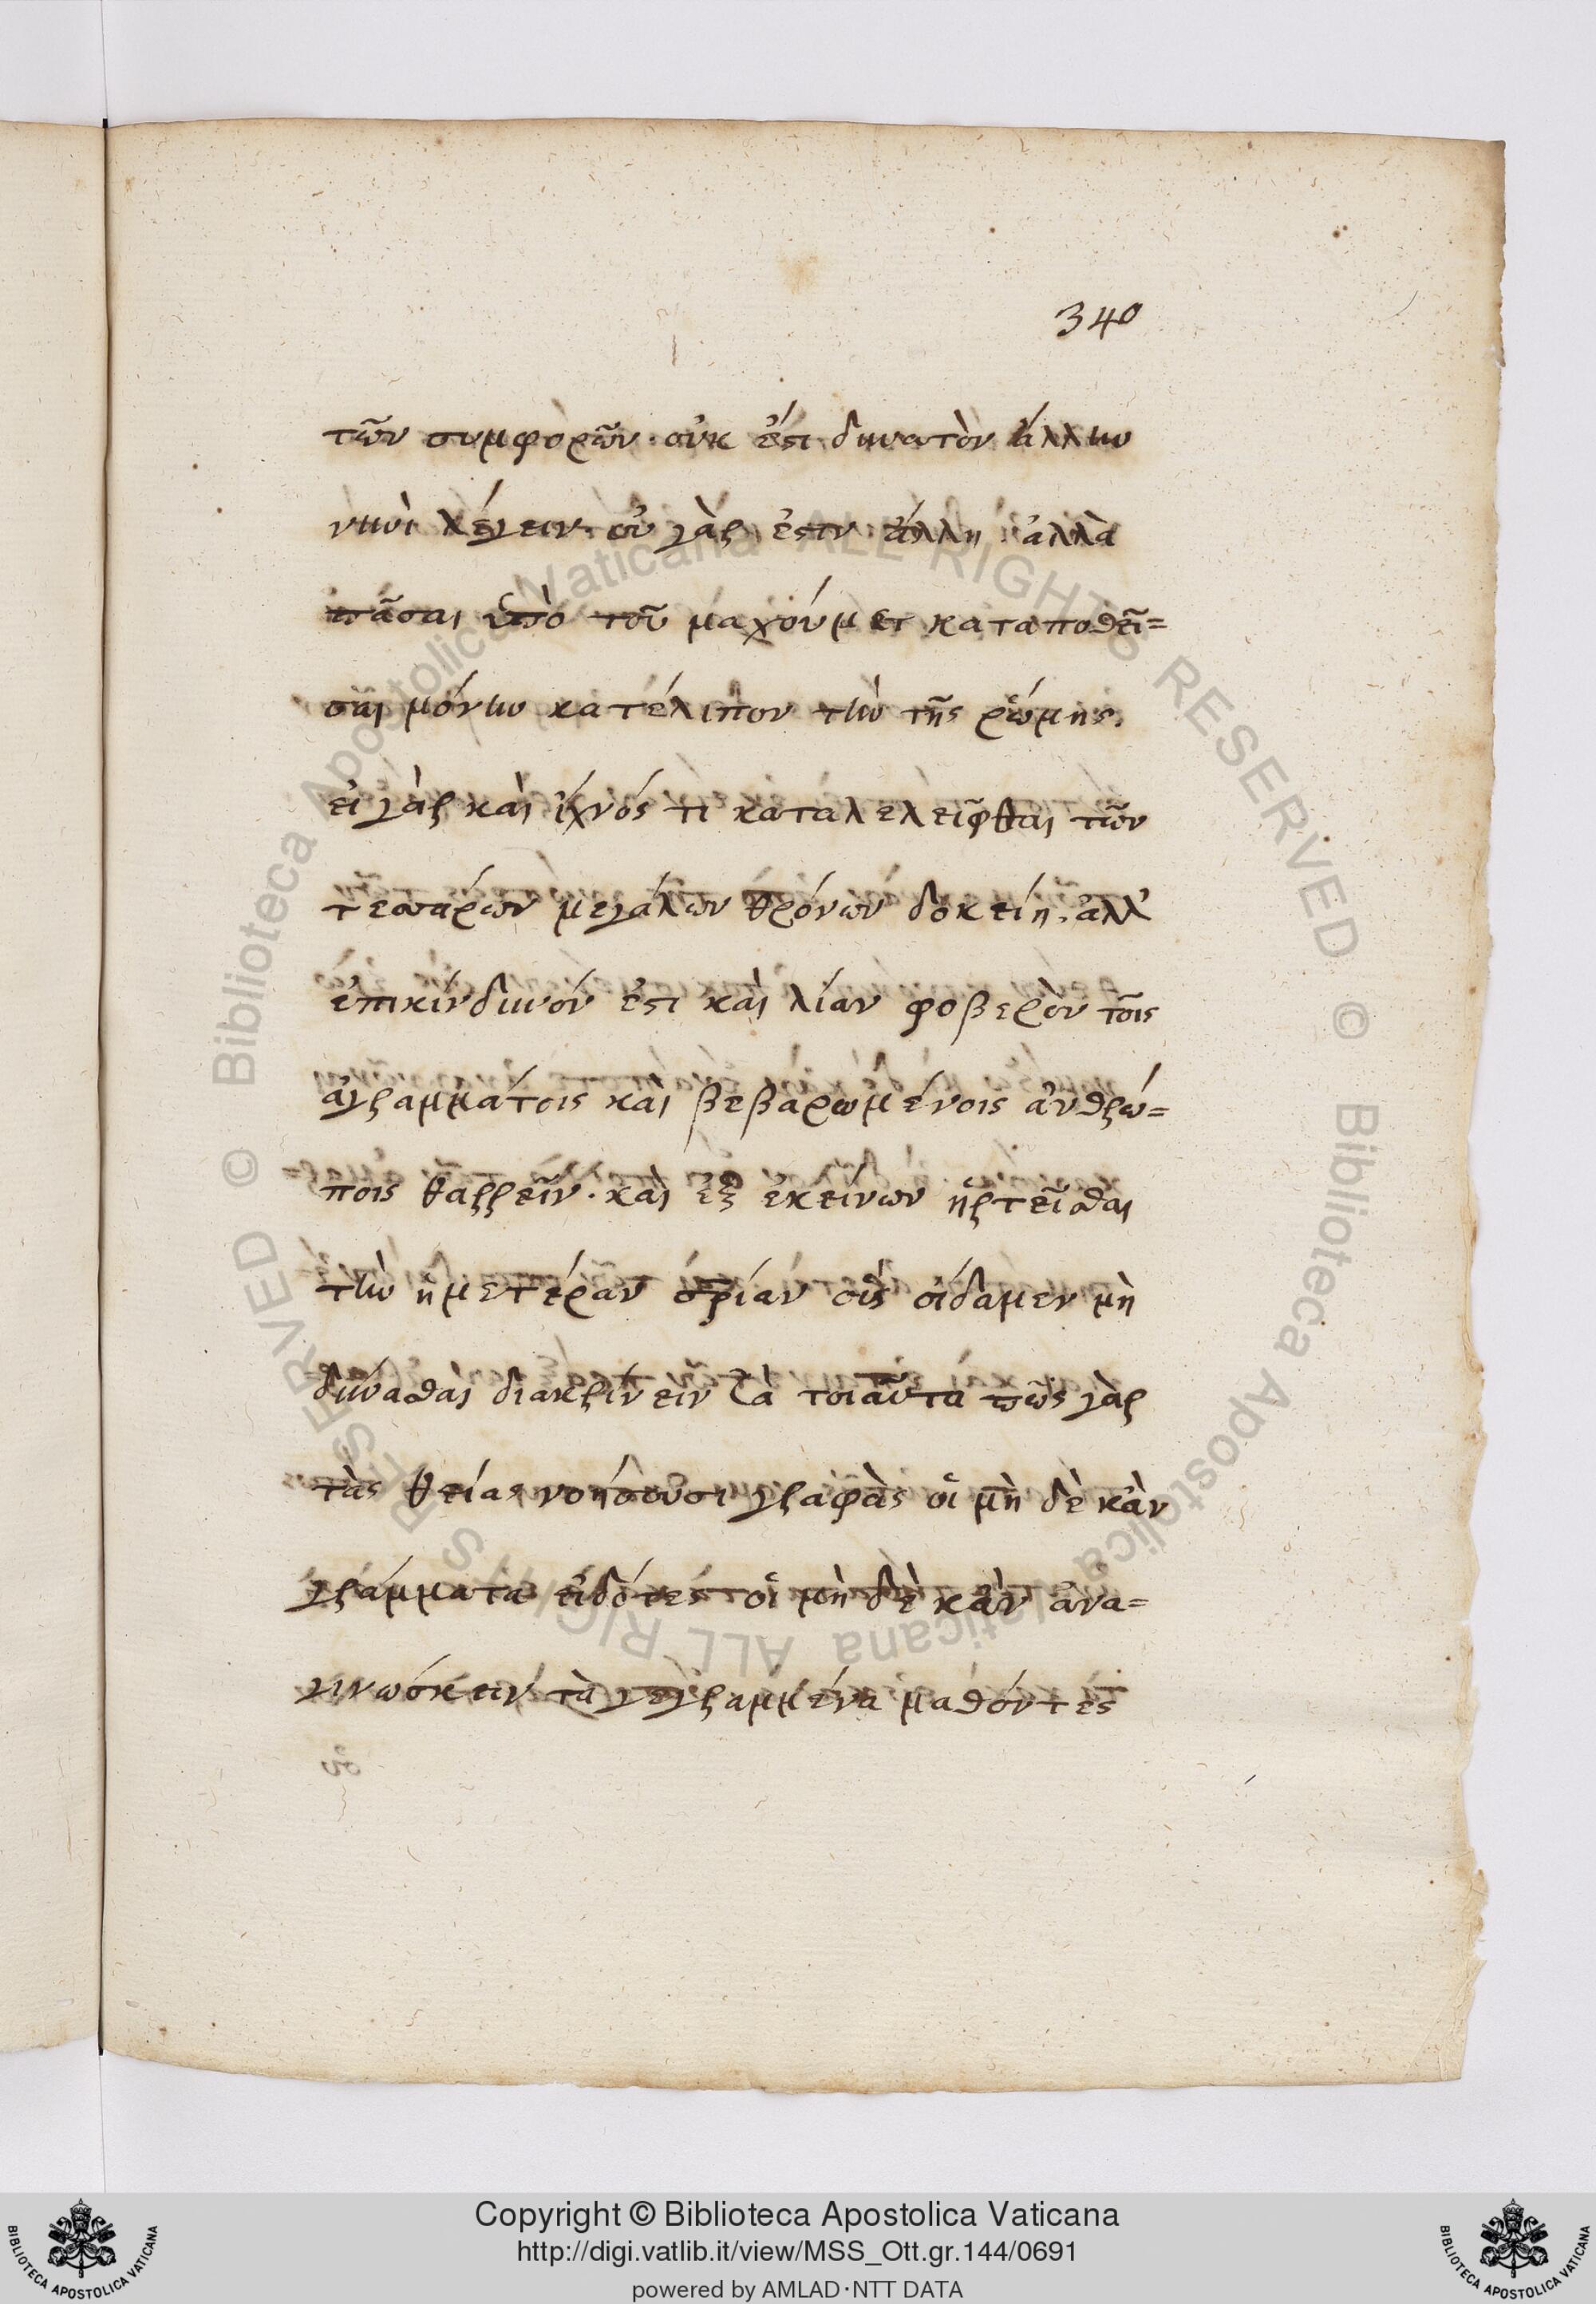 340
τῶν συμφορῶν· οὐκ ἔστι δυνατὸν ἄλλην
νυνὶ λέγειν· οὐ γὰρ ἔστιν ἄλλη· ἀλλὰ
πᾶσαι ὑπὸ τοῦ μαχούμετ καταποθεῖ=
σαι μόνην κατέλιπον τὴν τῆς ῥώμης.
εἰ γὰρ καὶ ἴχνός τι καταλελεῖφθαι τῶν
τεσσάρων μεγάλων θρόνων δοκείη· ἀλλ'
ἐπικίνδυνόν ἐστι καὶ λίαν φοβερὸν τοῖς
ἀγραμμάτοις καὶ βεβαρωμένοις ἀνθρώ=
ποις θαρρεῖν· καὶ ἐξ ἐκείνων ἠρτεῖσθαι
τὴν ἡμετέραν σ̅ρίαν οὓς οἴδαμεν μὴ
δύνασθαι διακρίνειν τὰ τοιαῦτα πῶς γὰρ
τὰς θείας νοήσουσι γραφὰς οἱ μὴ δὲ κἂν
γράμματα εἰδότες οἱ μὴ δὲ κἂν ἀνα=
γινώσκειν τὰ γεγραμμένα μαθόντες
Copyright © Biblioteca Apostolica Vaticana
http://digi.vatlib.it/view/MSS_Ott.gr.144/0691
powered by AMLAD·NTT DATA
© Biblioteca Apostolica Vaticana ALL RIGHTS RESERVED
© Biblioteca Apostolica Vaticana ALL RIGHTS RESERVED
BIBLIOTECA APOSTOLICA VATICANA
BIBLIOTECA APOSTOLICA VATICANA